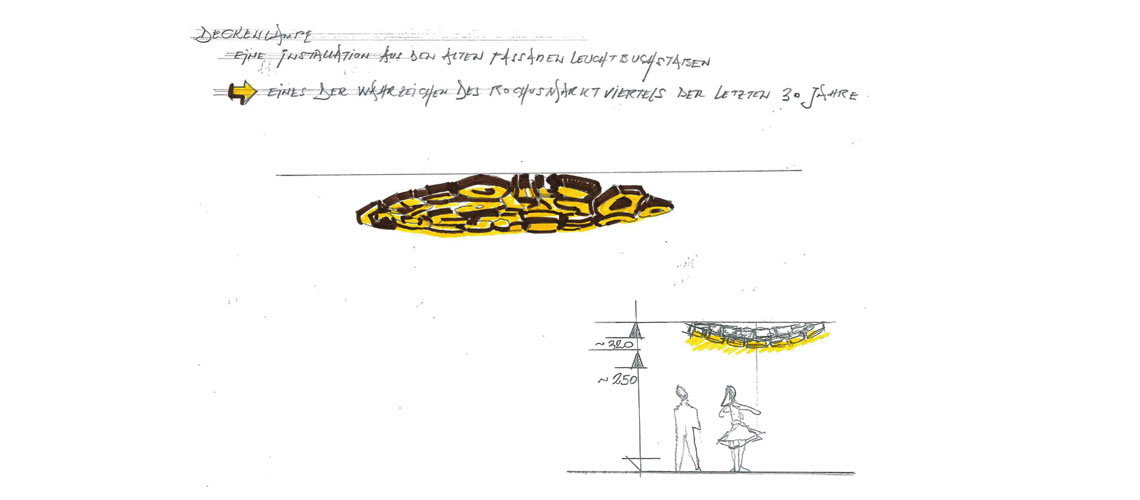 DECKENLAMPE
EINE INSTALLATION AUS DEN ALTEN FASSADEN LEUCHTBUCHSTABEN
EINES DER WAHRZEICHEN DES ROCHUSMARKTVIERTELS DER LETZTEN 30 JAHRE
~320
~250